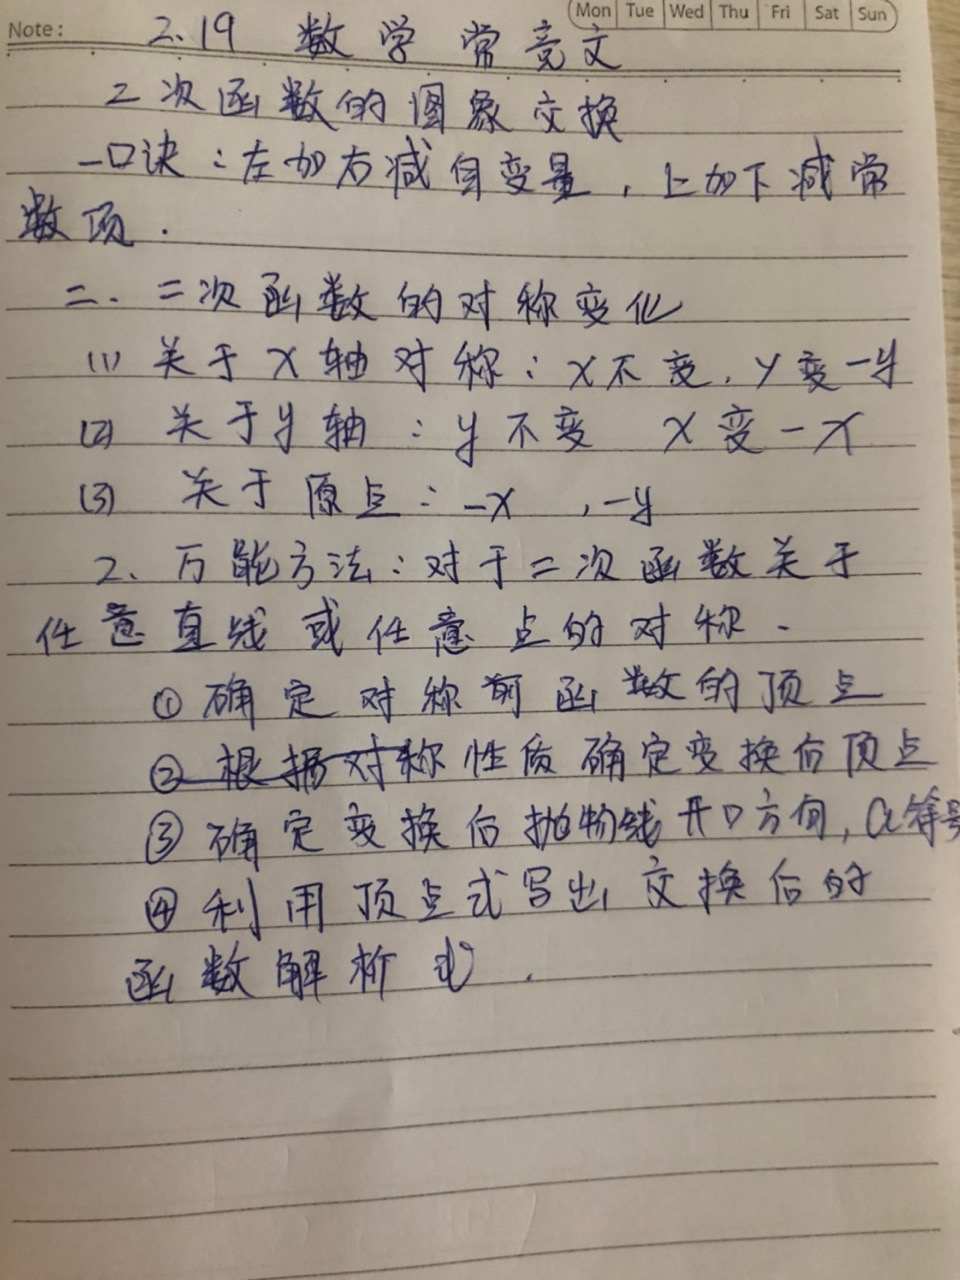 Note:
Mon Tue Wed Thu Fri Sat Sun
2.19 数学 常竞文
二次函数的图象交换
一口诀：左加右减自变量，上加下减常
数项.
二、二次函数的对称变化
(1) 关于X轴对称：X不变, y变-y
(2) 关于y轴：y不变 X变-X
(3) 关于原点：-X ,-y
2、万能方法：对于二次函数关于
任意直线或任意点的对称.
①确定对称前函数的顶点
②根据对称性质确定变换后顶点
③确定变换后抛物线开口方向, a符号
④利用顶点式写出交换后的
函数解析式.